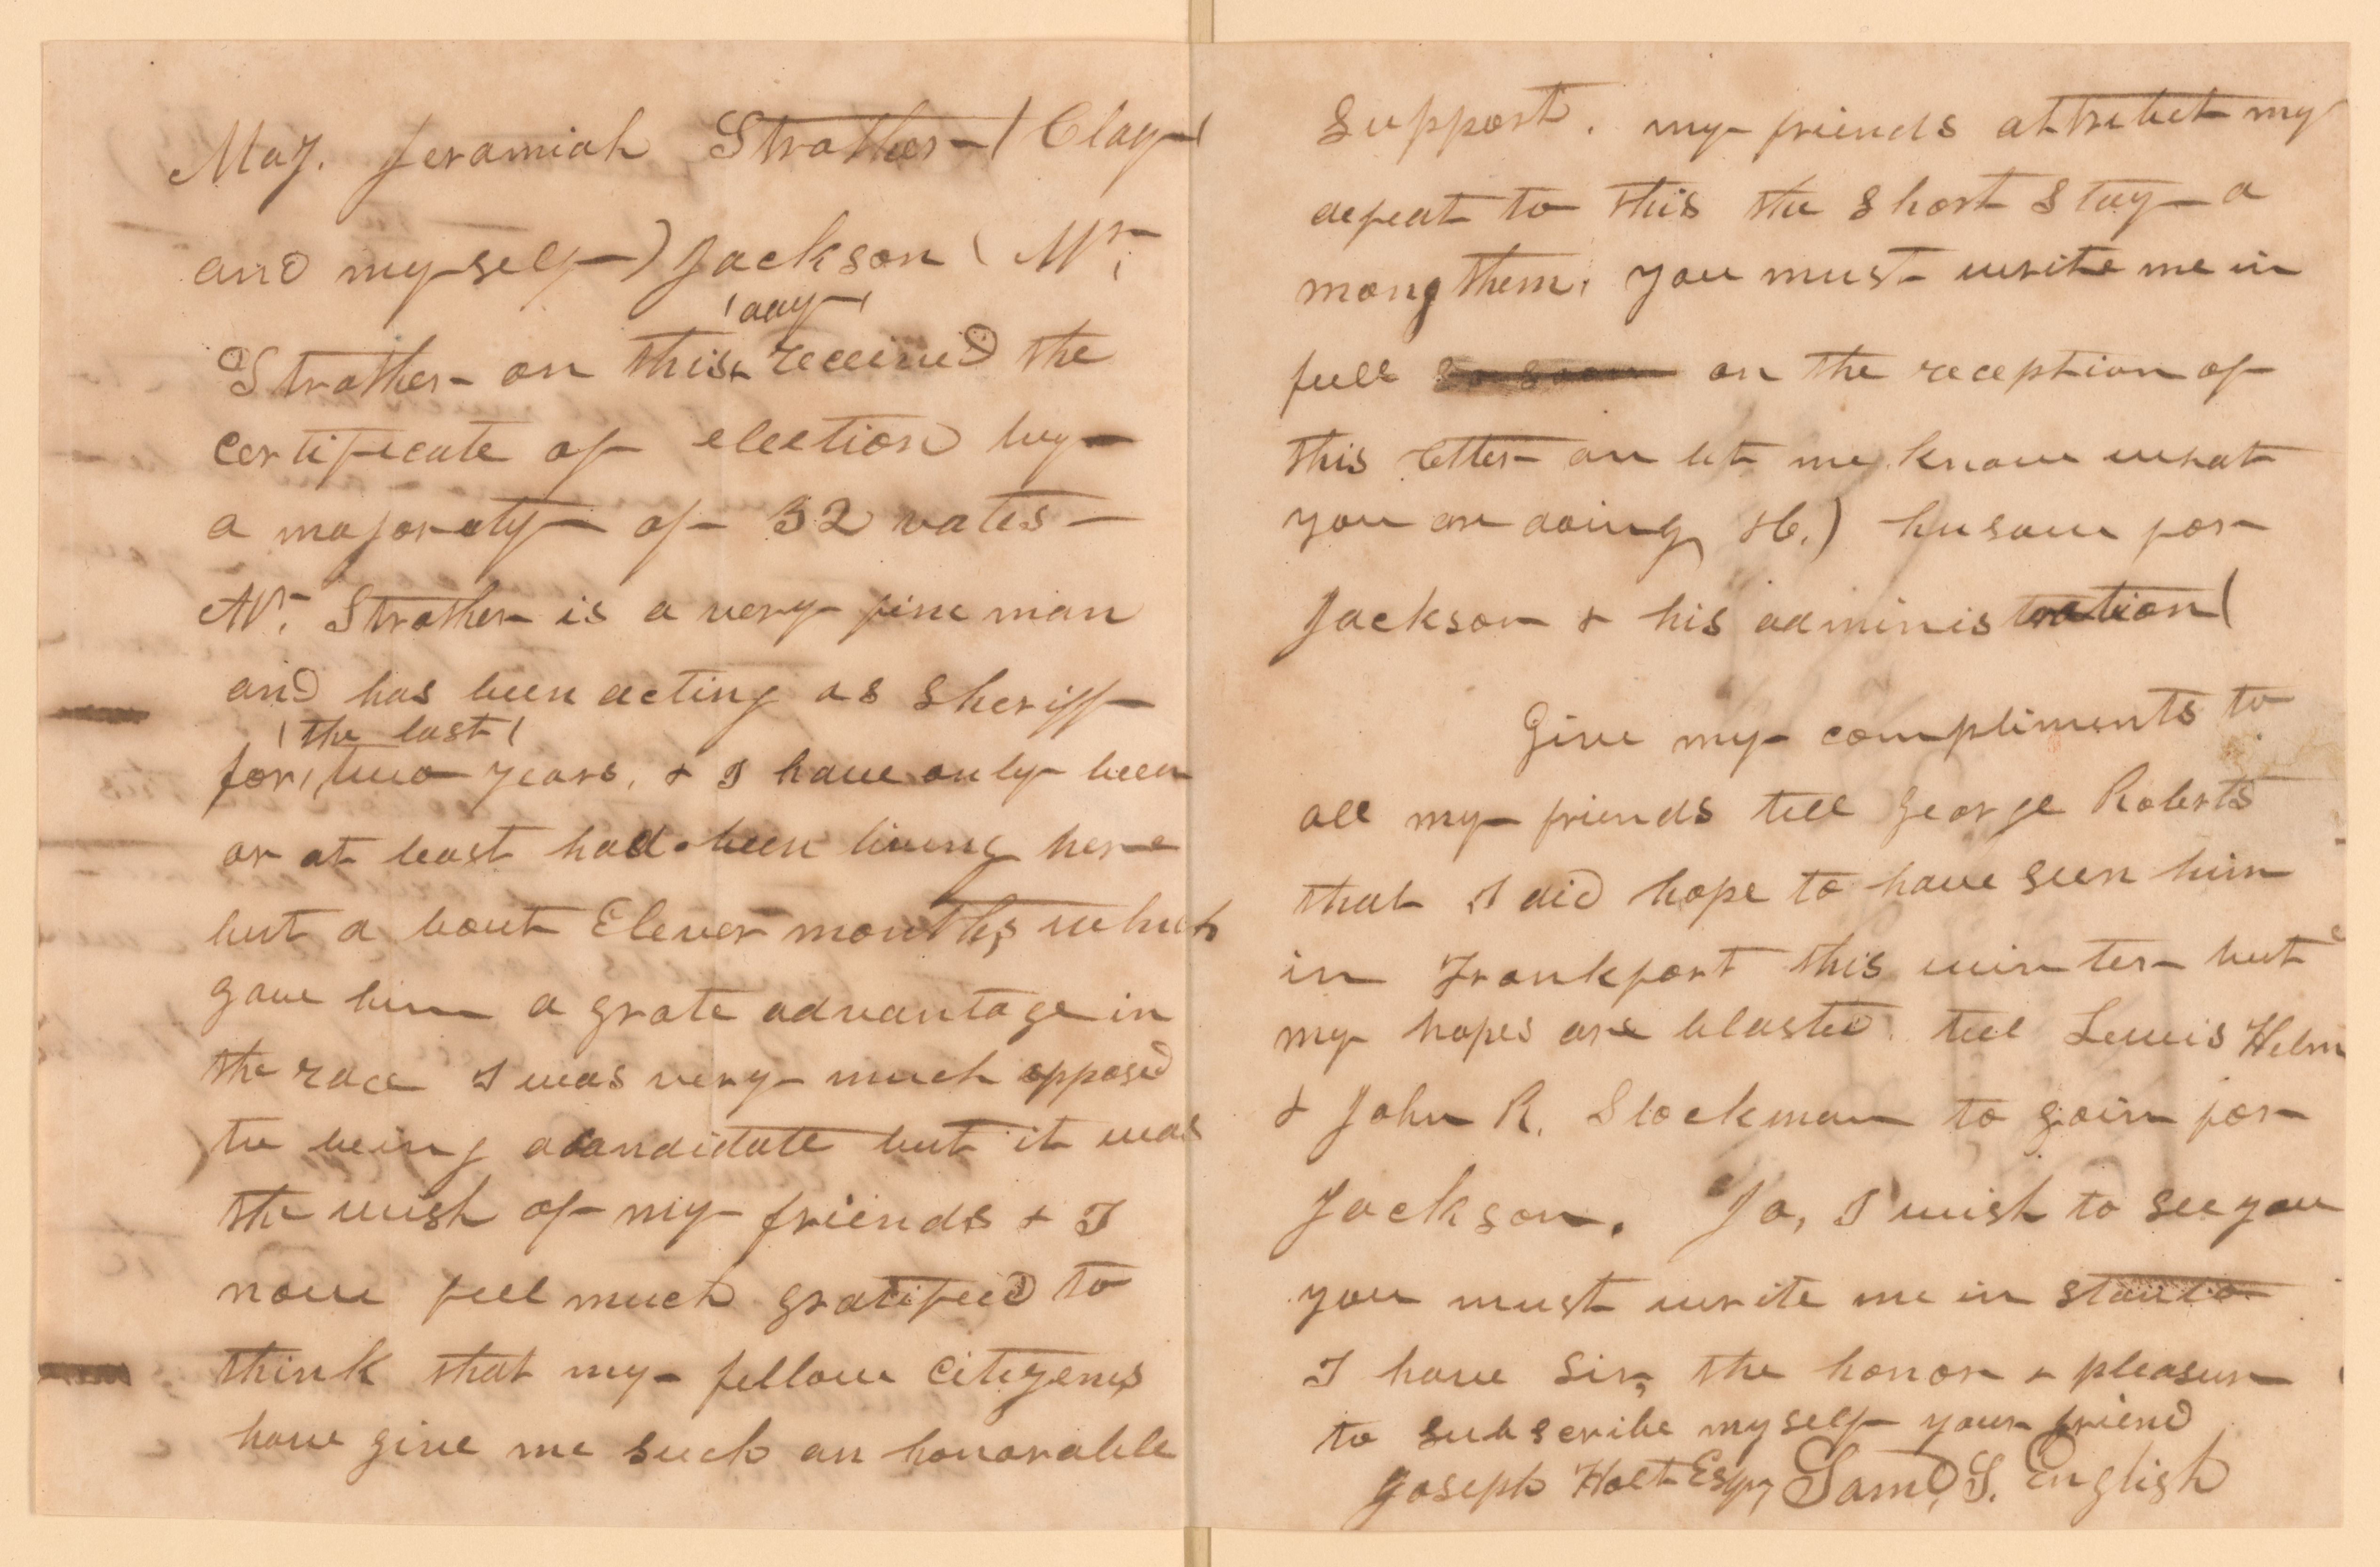 Maj. Jeramiah Strather (Clay)
and myself) Jackson ( Mr.
(day)
Strather on this received the
certificate of election by
a majoraty of 32 votes
Mr. Strather is a very fine man
and has been acting as Sheriff
(the last)
for two years, & I have only been
or at least had been living here
but a bout Eleven months, which
gave him a grate advantage in
the race I was very much opposed
to being a candidate but it was
the wish of my friends & I
now feel much gratified to
think that my fellow citizens
have give me such an honorable
Support. my friends attribut my
defeat to this the Short Stay a
mong them. you must write me in
full so soon on the reception of
this letter an let me know what
you are doing &c.) husaw for
Jackson & his administration(
Give my compliments to
all my friends tell George Roberts
that I did hope to have seen him
in Frankfort this winter but
my hopes are blasted. tell Lewis Helm
& John R. Stockman to goin for
Jackson. Jo, I wish to see you
you must write me in
I have Sir, the honor & pleasure
to subscribe myself your friend
Joseph Holt Esqr, Saml. S. English